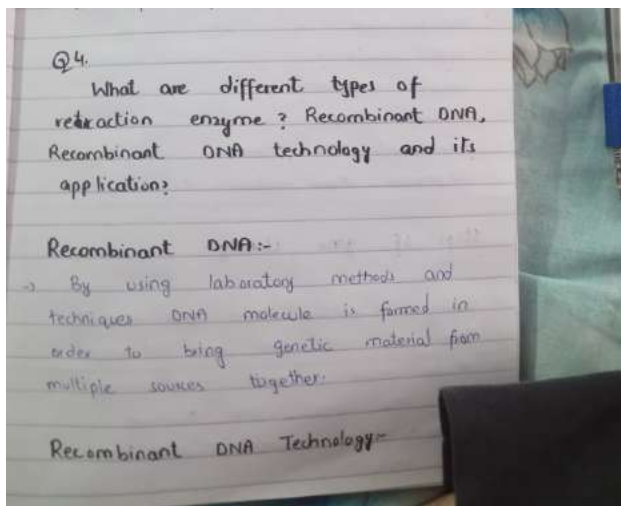 Q4.
What are different types of
retraction enzyme ? Recombinant DNA,
Recombinant DNA technology and its
application?
Recombinant DNA:-
→ By using laboratory methods and
techniques DNA molecule is formed in
order to bring genetic material from
multiple sources together.
Recombinant DNA Technology:-